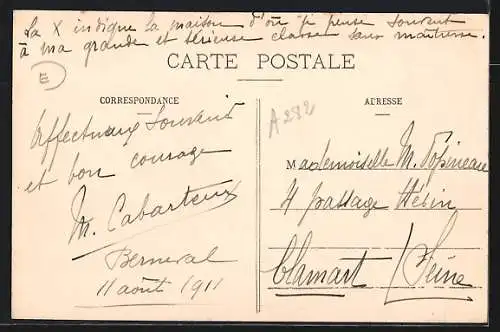 La X indique la maison d'où je pense souvent
à ma grande et sérieuse classe sans maîtresse.
E
CARTE POSTALE
CORRESPONDANCE
ADRESSE
A282
Affectueux Souvenir
et bon courage
M. Cabarteux
Berneval
11 août 1911
Mademoiselle M. Popineau
4 passage Hébin
Clamart (Seine